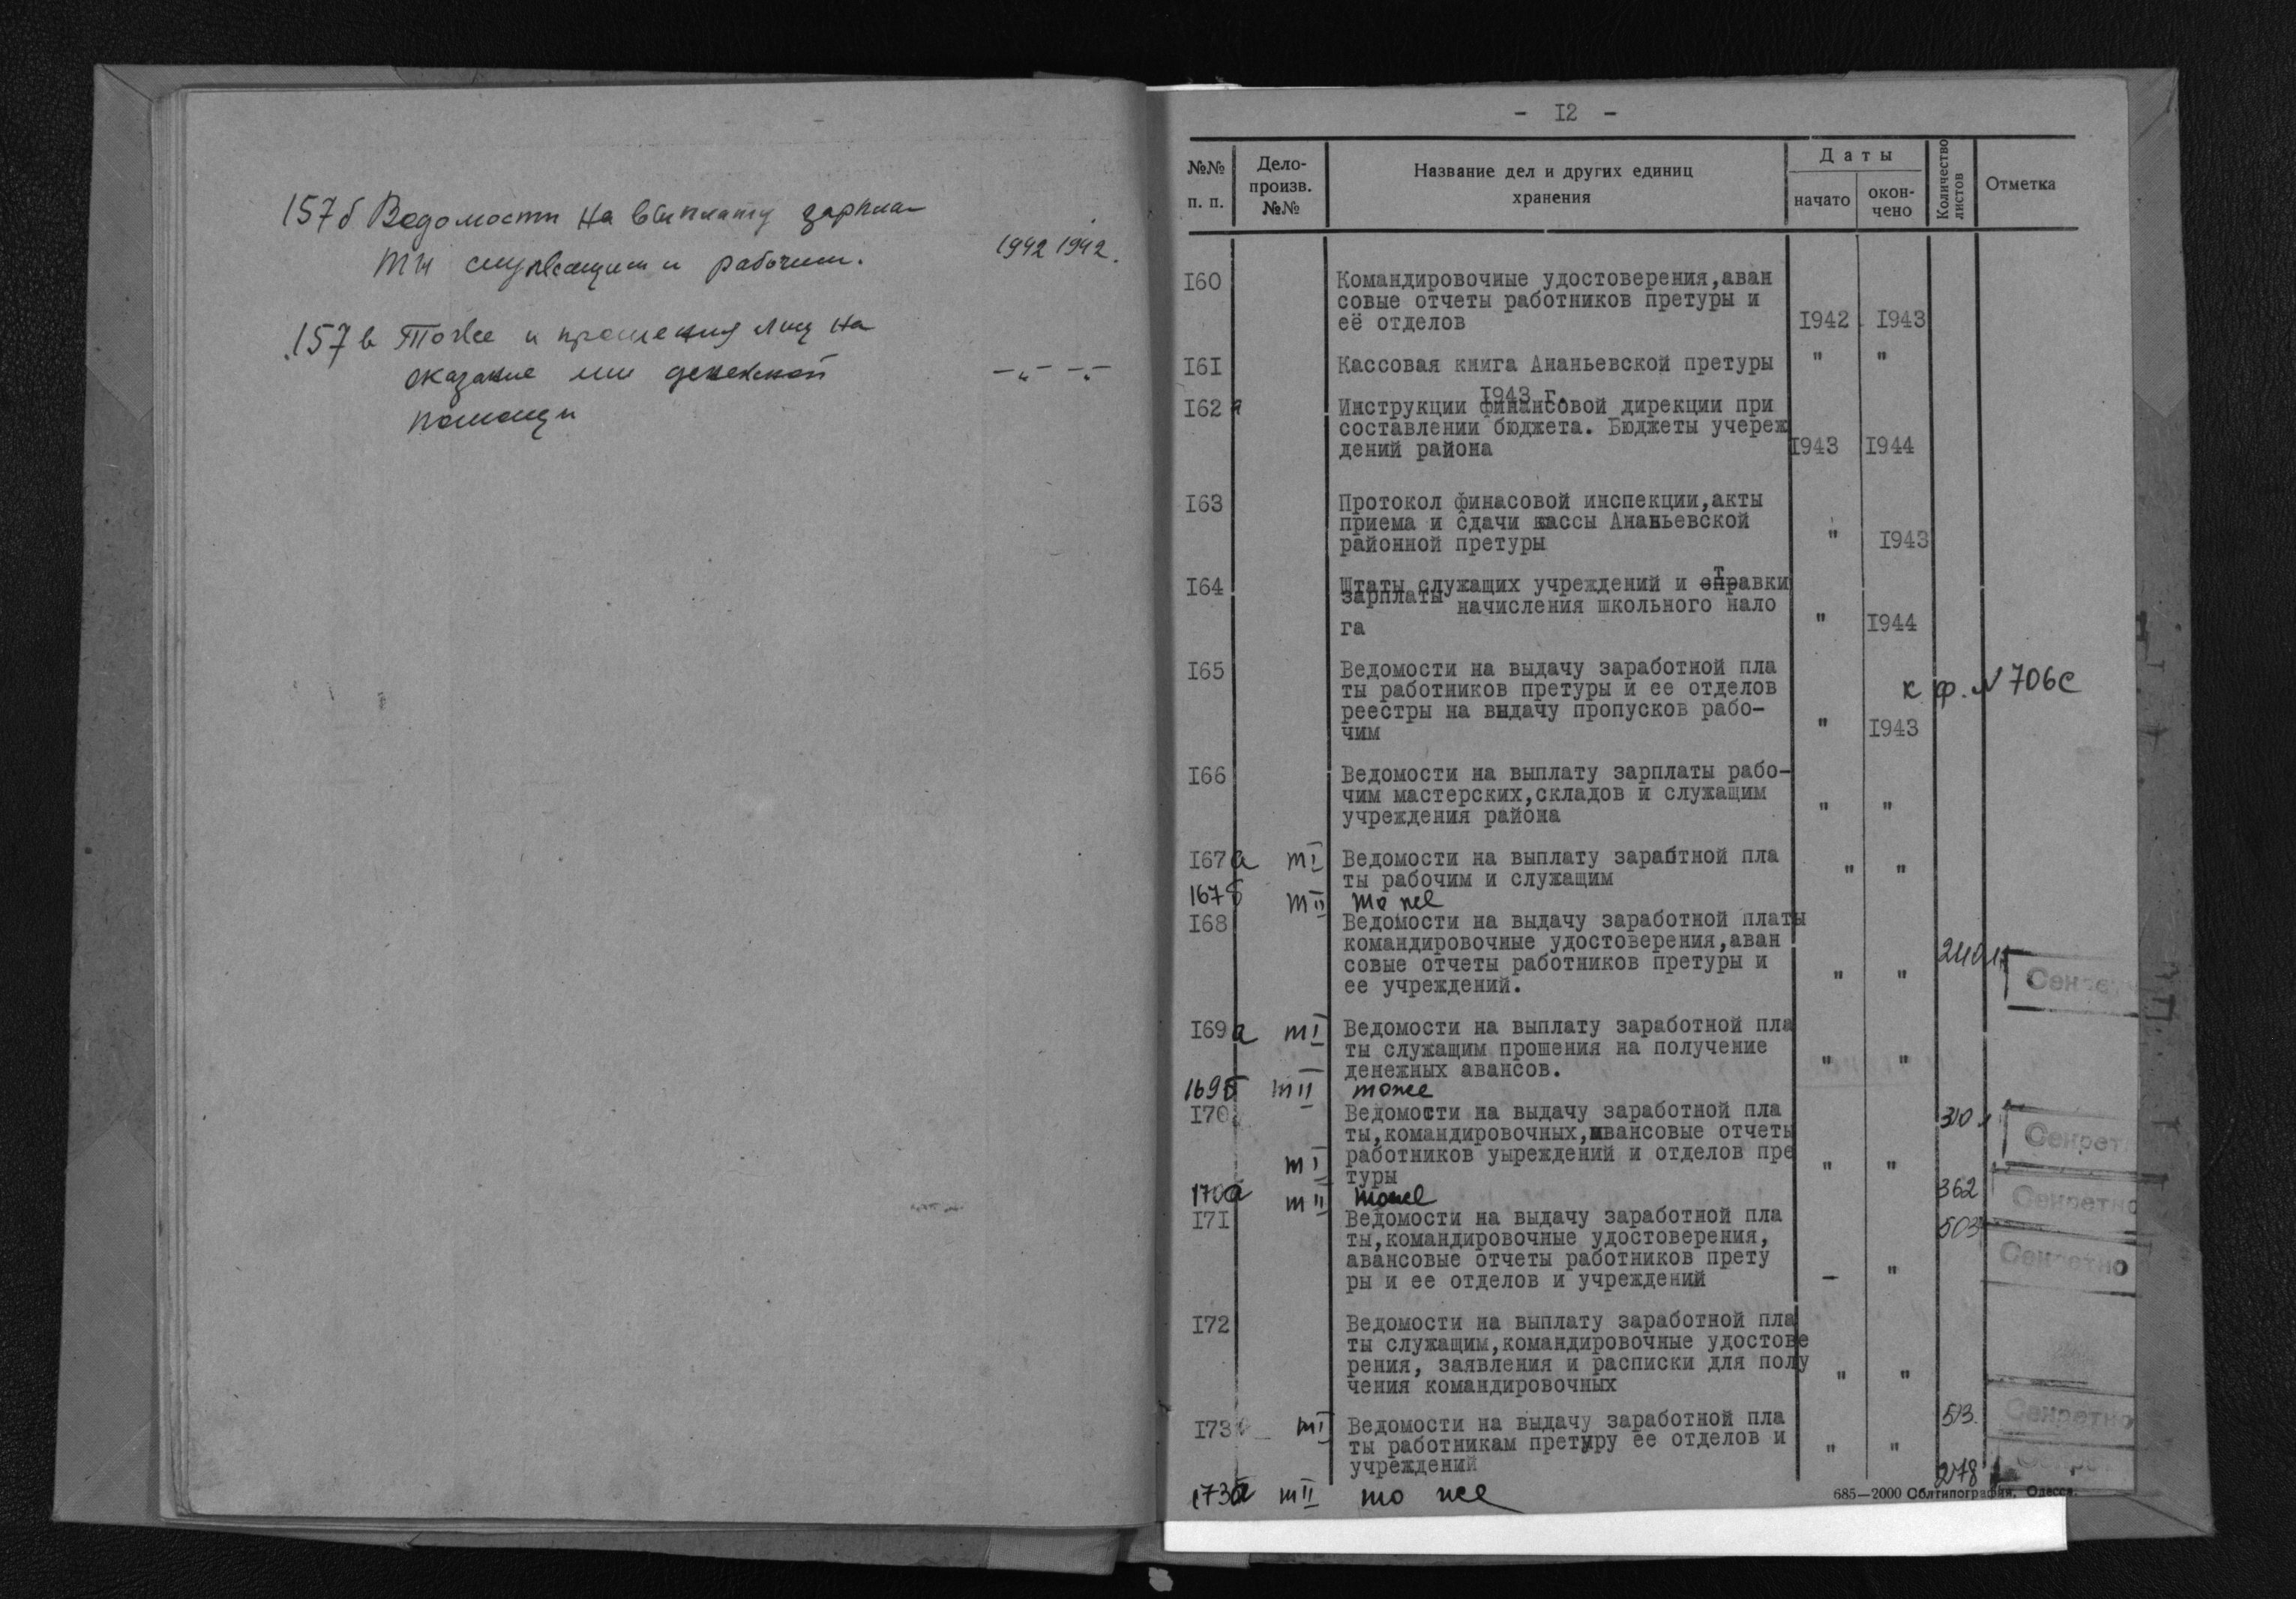 157б Ведомости на выплату зарпла-
ты служащим и рабочим.
1942 1942.
157в Тоже и прошения лиц на
оказание им денежной
-"- -"-
помощи
- I2 -
№№ п. п.
Дело-произв. №№
Название дел и других единиц хранения
Даты
начато
окон-чено
Количество листов
Отметка
I60 Командировочные удостоверения,аван
совые отчеты работников претуры и
её отделов I942 I943
I6I Кассовая книга Ананьевской претуры " "
I943 г.
I62 Инструкции финансовой дирекции при
составлении бюджета. Бюджеты учереж
дений района I943 I944
I63 Протокол финасовой инспекции,акты
приема и сдачи кассы Ананьевской
районной претуры " I943
I64 Штаты служащих учреждений и
зарплаты начисления школьного нало
га " I944
I65 Ведомости на выдачу заработной пла
ты работников претуры и ее отделов к ф. N 706с
реестры на выдачу пропусков рабо-
чим " I943
I66 Ведомости на выплату зарплаты рабо-
чим мастерских,складов и служащим
учреждения района " "
I67а т I Ведомости на выплату зарабтной пла
ты рабочим и служащим " "
167б т II то же
I68 Ведомости на выдачу заработной платы
командировочные удостоверения,аван
совые отчеты работников претуры и
ее учреждений. " " 240л Секретно
I69а т I Ведомости на выплату заработной пла
ты служащим прошения на получение
денежных авансов. " "
169б т II тоже
I70 Ведомости на выдачу заработной пла
ты,командировочных,авансовые отчеты 310л Секретно
т I работников учреждений и отделов пре
туры " "
170а т II тоже 362 Секретно
I7I Ведомости на выдачу заработной пла
ты,командировочные удостоверения, 503 Секретно
авансовые отчеты работников прету
ры и ее отделов и учреждений - "
I72 Ведомости на выплату заработной пла
ты служащим,командировочные удостове
рения, заявления и расписки для полу
чения командировочных " "
I73 т I Ведомости на выдачу заработной пла 513. Секретно
ты работникам претуру ее отделов и
учреждений " "
173а т II то же 278
685—2000 Облтипография, Одесса.